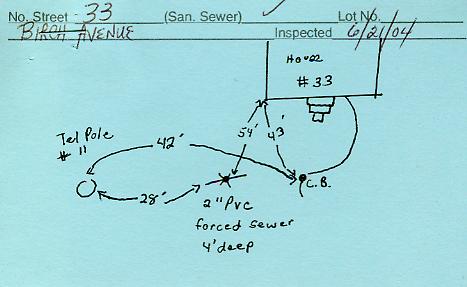 No. Street 33 (San. Sewer) ✓ Lot No.
BIRCH AVENUE Inspected 6/21/04
House
# 33
Tel Pole
# 11
42'
54'
43'
C.B.
28'
2" PVC
forced sewer
4' deep